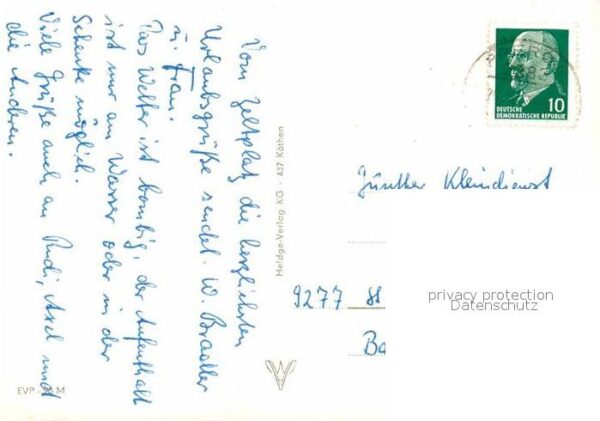 Vom Zeltplatz die herzlichsten
Urlaubsgrüße sendet W. Bradler
u. Frau.
Das Wetter ist bombig, der Aufenthalt
ist nur am Wasser oder in der
Schenke möglich.
Viele Grüße auch an Rudi, Axel und
die Andren.
EVP -,20 M
Heldge-Verlag KG · 437 Köthen
10
DEUTSCHE
DEMOKRATISCHE REPUBLIK
Günther Kleindienst
9277 St
Ba
privacy protection
Datenschutz